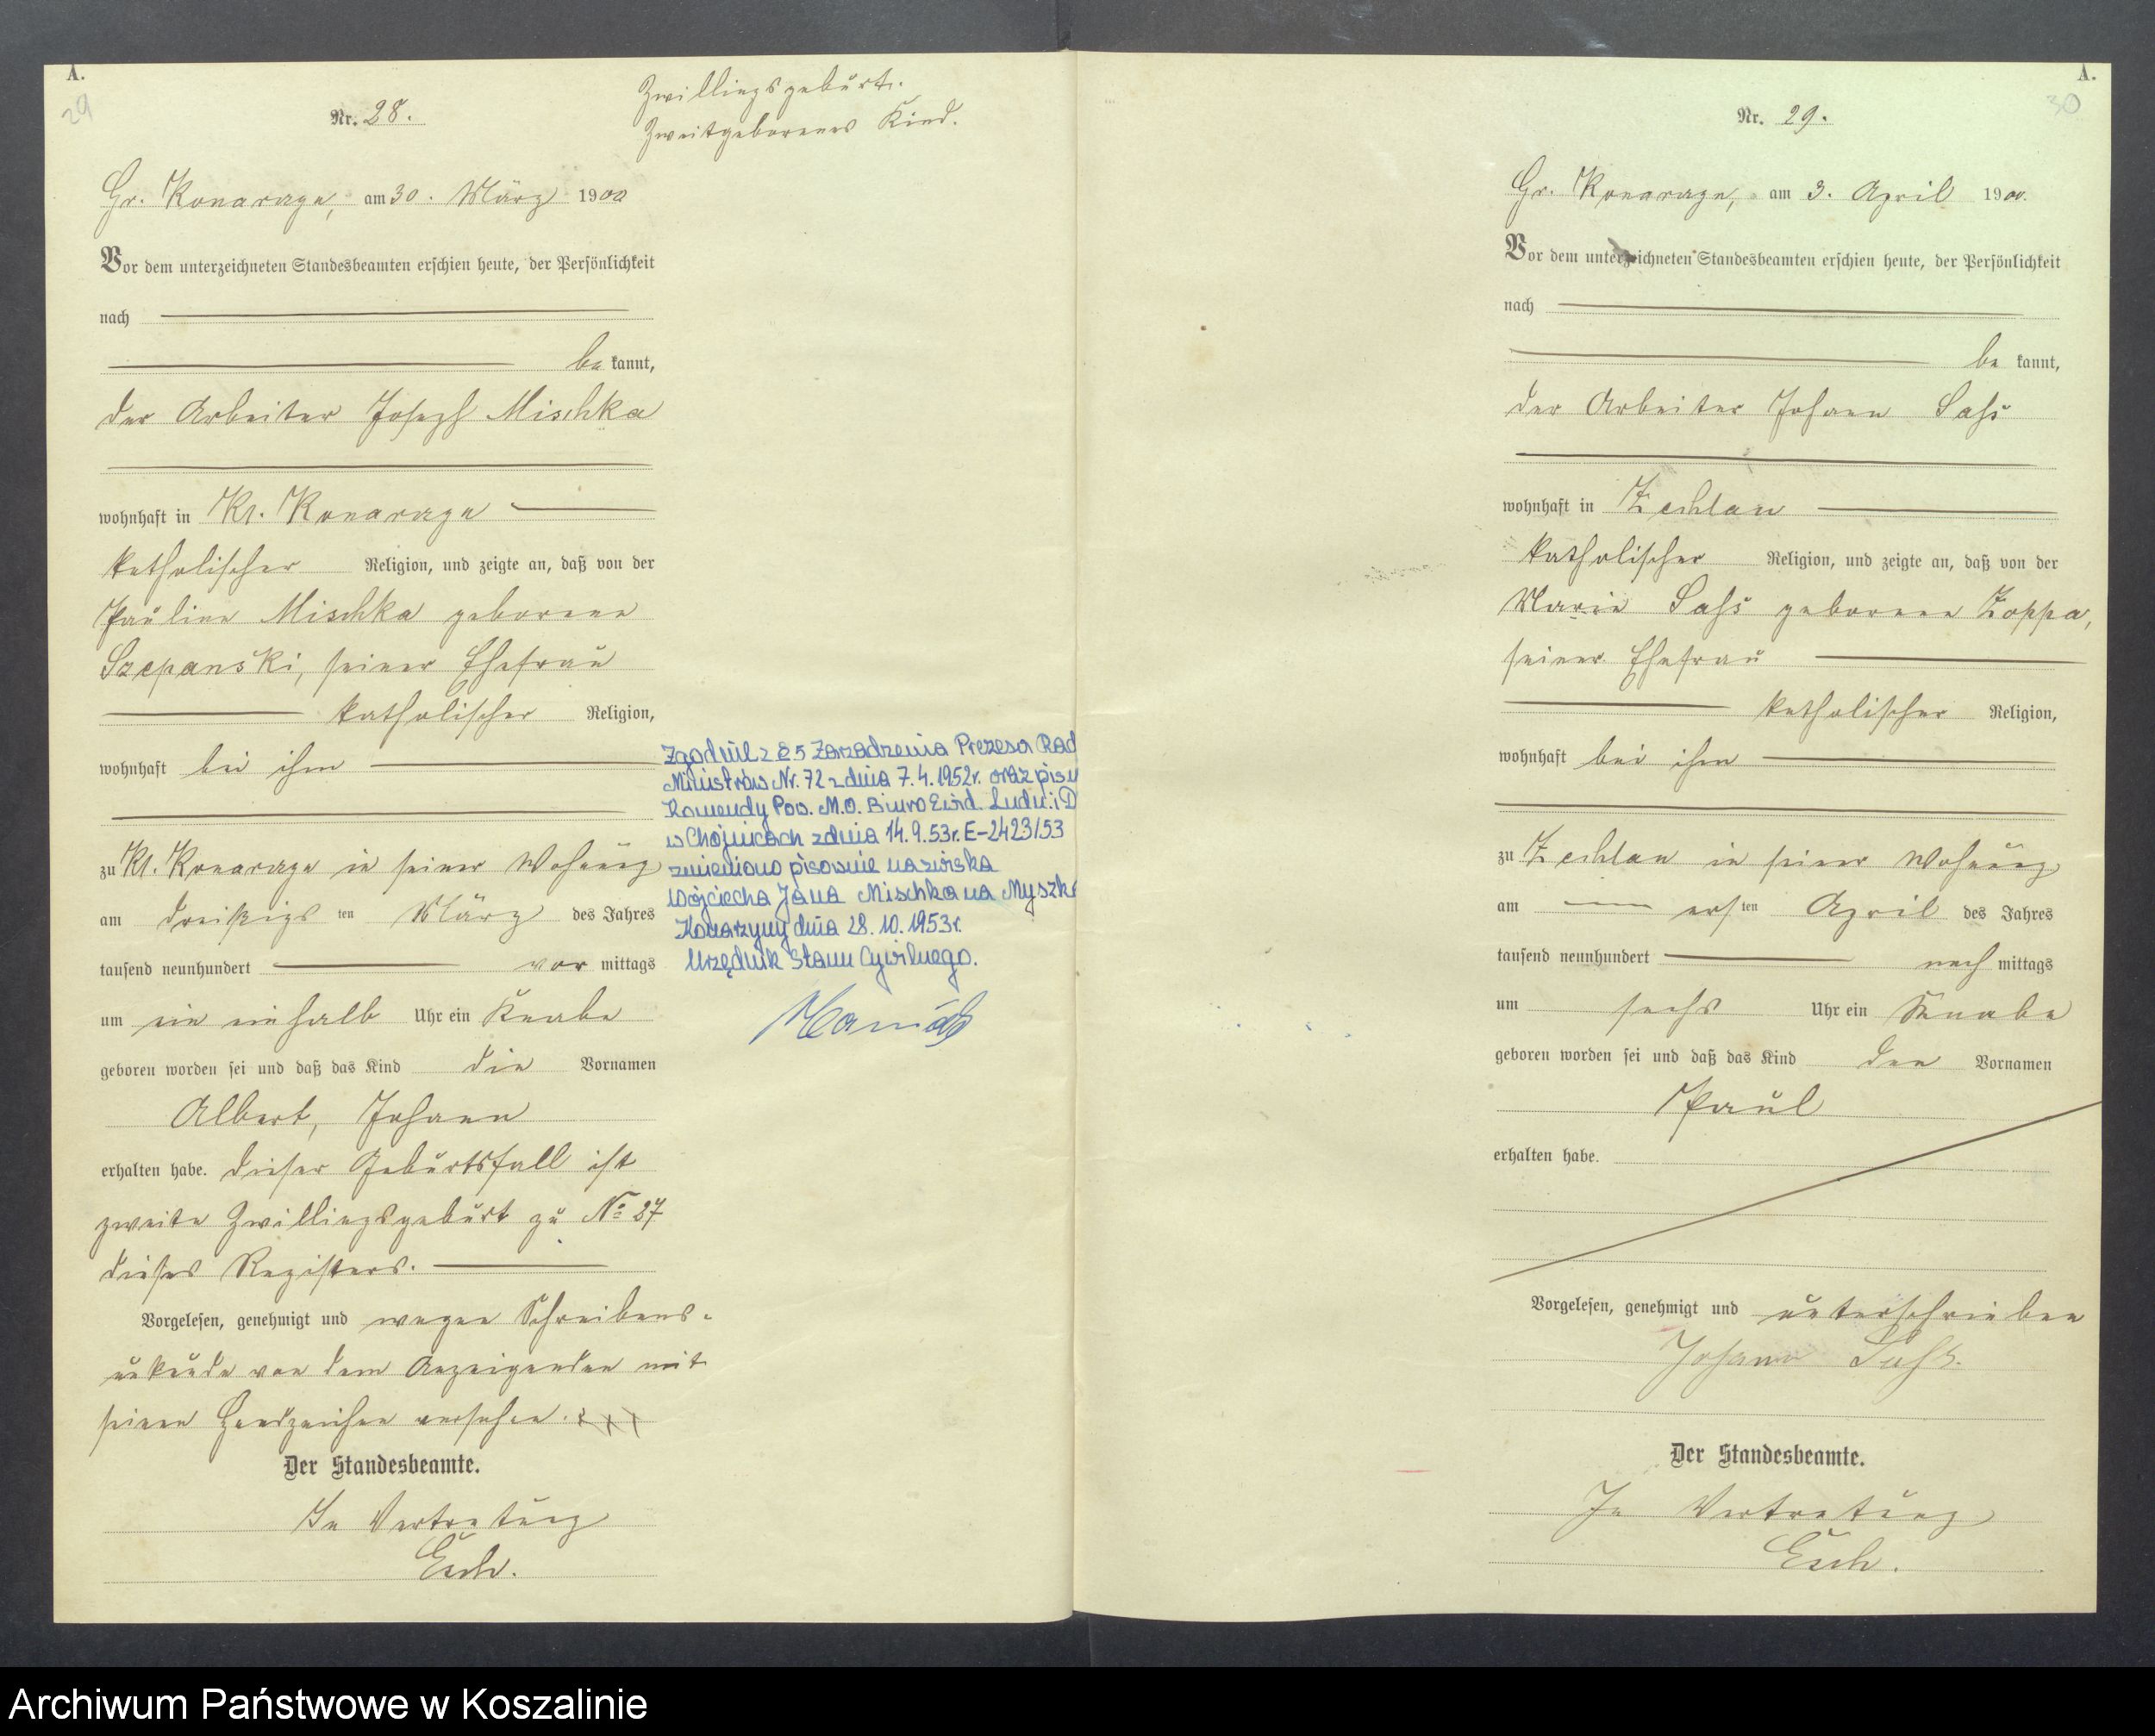 A.
29
Nr. 28.
Zwillingsgeburt.
Zweitgeborenes Kind.
Gr. Konarzyn, am 30. März 1900
Vor dem unterzeichneten Standesbeamten erschien heute, der Persönlichkeit
nach
be kannt,
der Arbeiter Joseph Mischka
wohnhaft in Kl. Konarzyn
katholischer Religion, und zeigte an, daß von der
Pauline Mischka geborene
Szepanski, seiner Ehefrau
katholischer Religion,
wohnhaft bei ihm
zu Kl. Konarzyn in seiner Wohnung
am dreißigs ten März des Jahres
tausend neunhundert vor mittags
um ein einhalb Uhr ein Knabe
geboren worden sei und daß das Kind die Vornamen
Albert, Johann
erhalten habe. Dieser Geburtsfall ist
zweite Zwillingsgeburt zu No 27
dieses Registers.
Vorgelesen, genehmigt und wegen Schreibens-
unkunde von dem Anzeigenden mit
seinen Handzeichen versehen. xxx
Der Standesbeamte.
In Vertretung
Esch.
Zgodnie z § 5 Zarządzenia Prezesa Rad
Ministrów Nr. 72 z dnia 7.4.1952r. oraz pism
Komendy Pow. M.O. Biuro Ewid. Ludn. i D
w Chojnicach z dnia 14.9.53r. E-2423/53
zmieniono pisownie nazwiska
Wojciecha Jana Mischka na Myszk
Konarzyny dnia 28.10.1953r.
Urzędnik Stanu Cywilnego.
A.
30
Nr. 29.
Gr. Konarzyn, am 3. April 1900.
Vor dem unterzeichneten Standesbeamten erschien heute, der Persönlichkeit
nach
be kannt,
der Arbeiter Johann Sass
wohnhaft in Zechlau
katholischer Religion, und zeigte an, daß von der
Marie Sass geborene Zoppa,
seiner Ehefrau
katholischer Religion,
wohnhaft bei ihm
zu Zechlau in seiner Wohnung
am ers ten April des Jahres
tausend neunhundert nach mittags
um sechs Uhr ein Knabe
geboren worden sei und daß das Kind den Vornamen
Paul
erhalten habe.
Vorgelesen, genehmigt und unterschrieben
Johann Sass.
Der Standesbeamte.
In Vertretung
Esch.
Archiwum Państwowe w Koszalinie